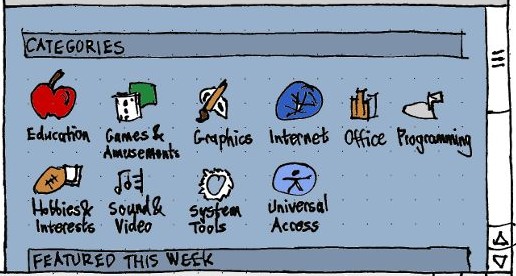 CATEGORIES
Education Games & Amusements Graphics Internet Office Programming
Hobbies & Interests Sound & Video System Tools Universal Access
FEATURED THIS WEEK